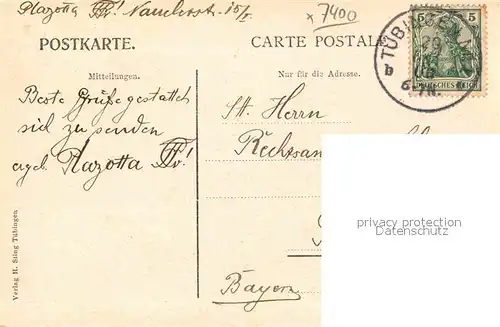 Plazotta Nauklerstr. 15/I.
7400
POSTKARTE.
CARTE POSTAL
TÜBINGEN
5
29
b
DEUTSCHES REICH
Mitteilungen.
Nur für die Adresse.
Beste Grüße gestattet
sich zu senden
ergl. Plazotta
St. Herrn
Rechtsan
Bayern
Verlag H. Sting Tübingen
privacy protection
AnsichtskartenVersand